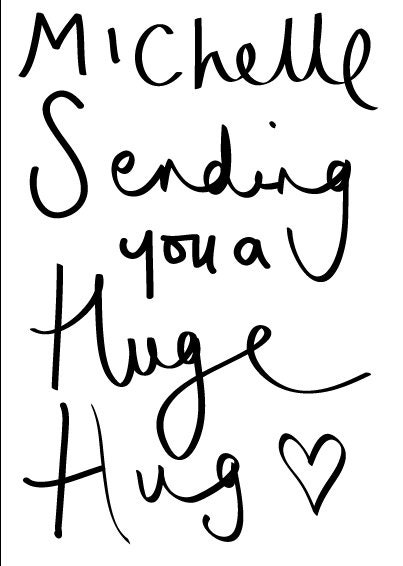 Michelle
Sending
you a
Huge
Hug ♡